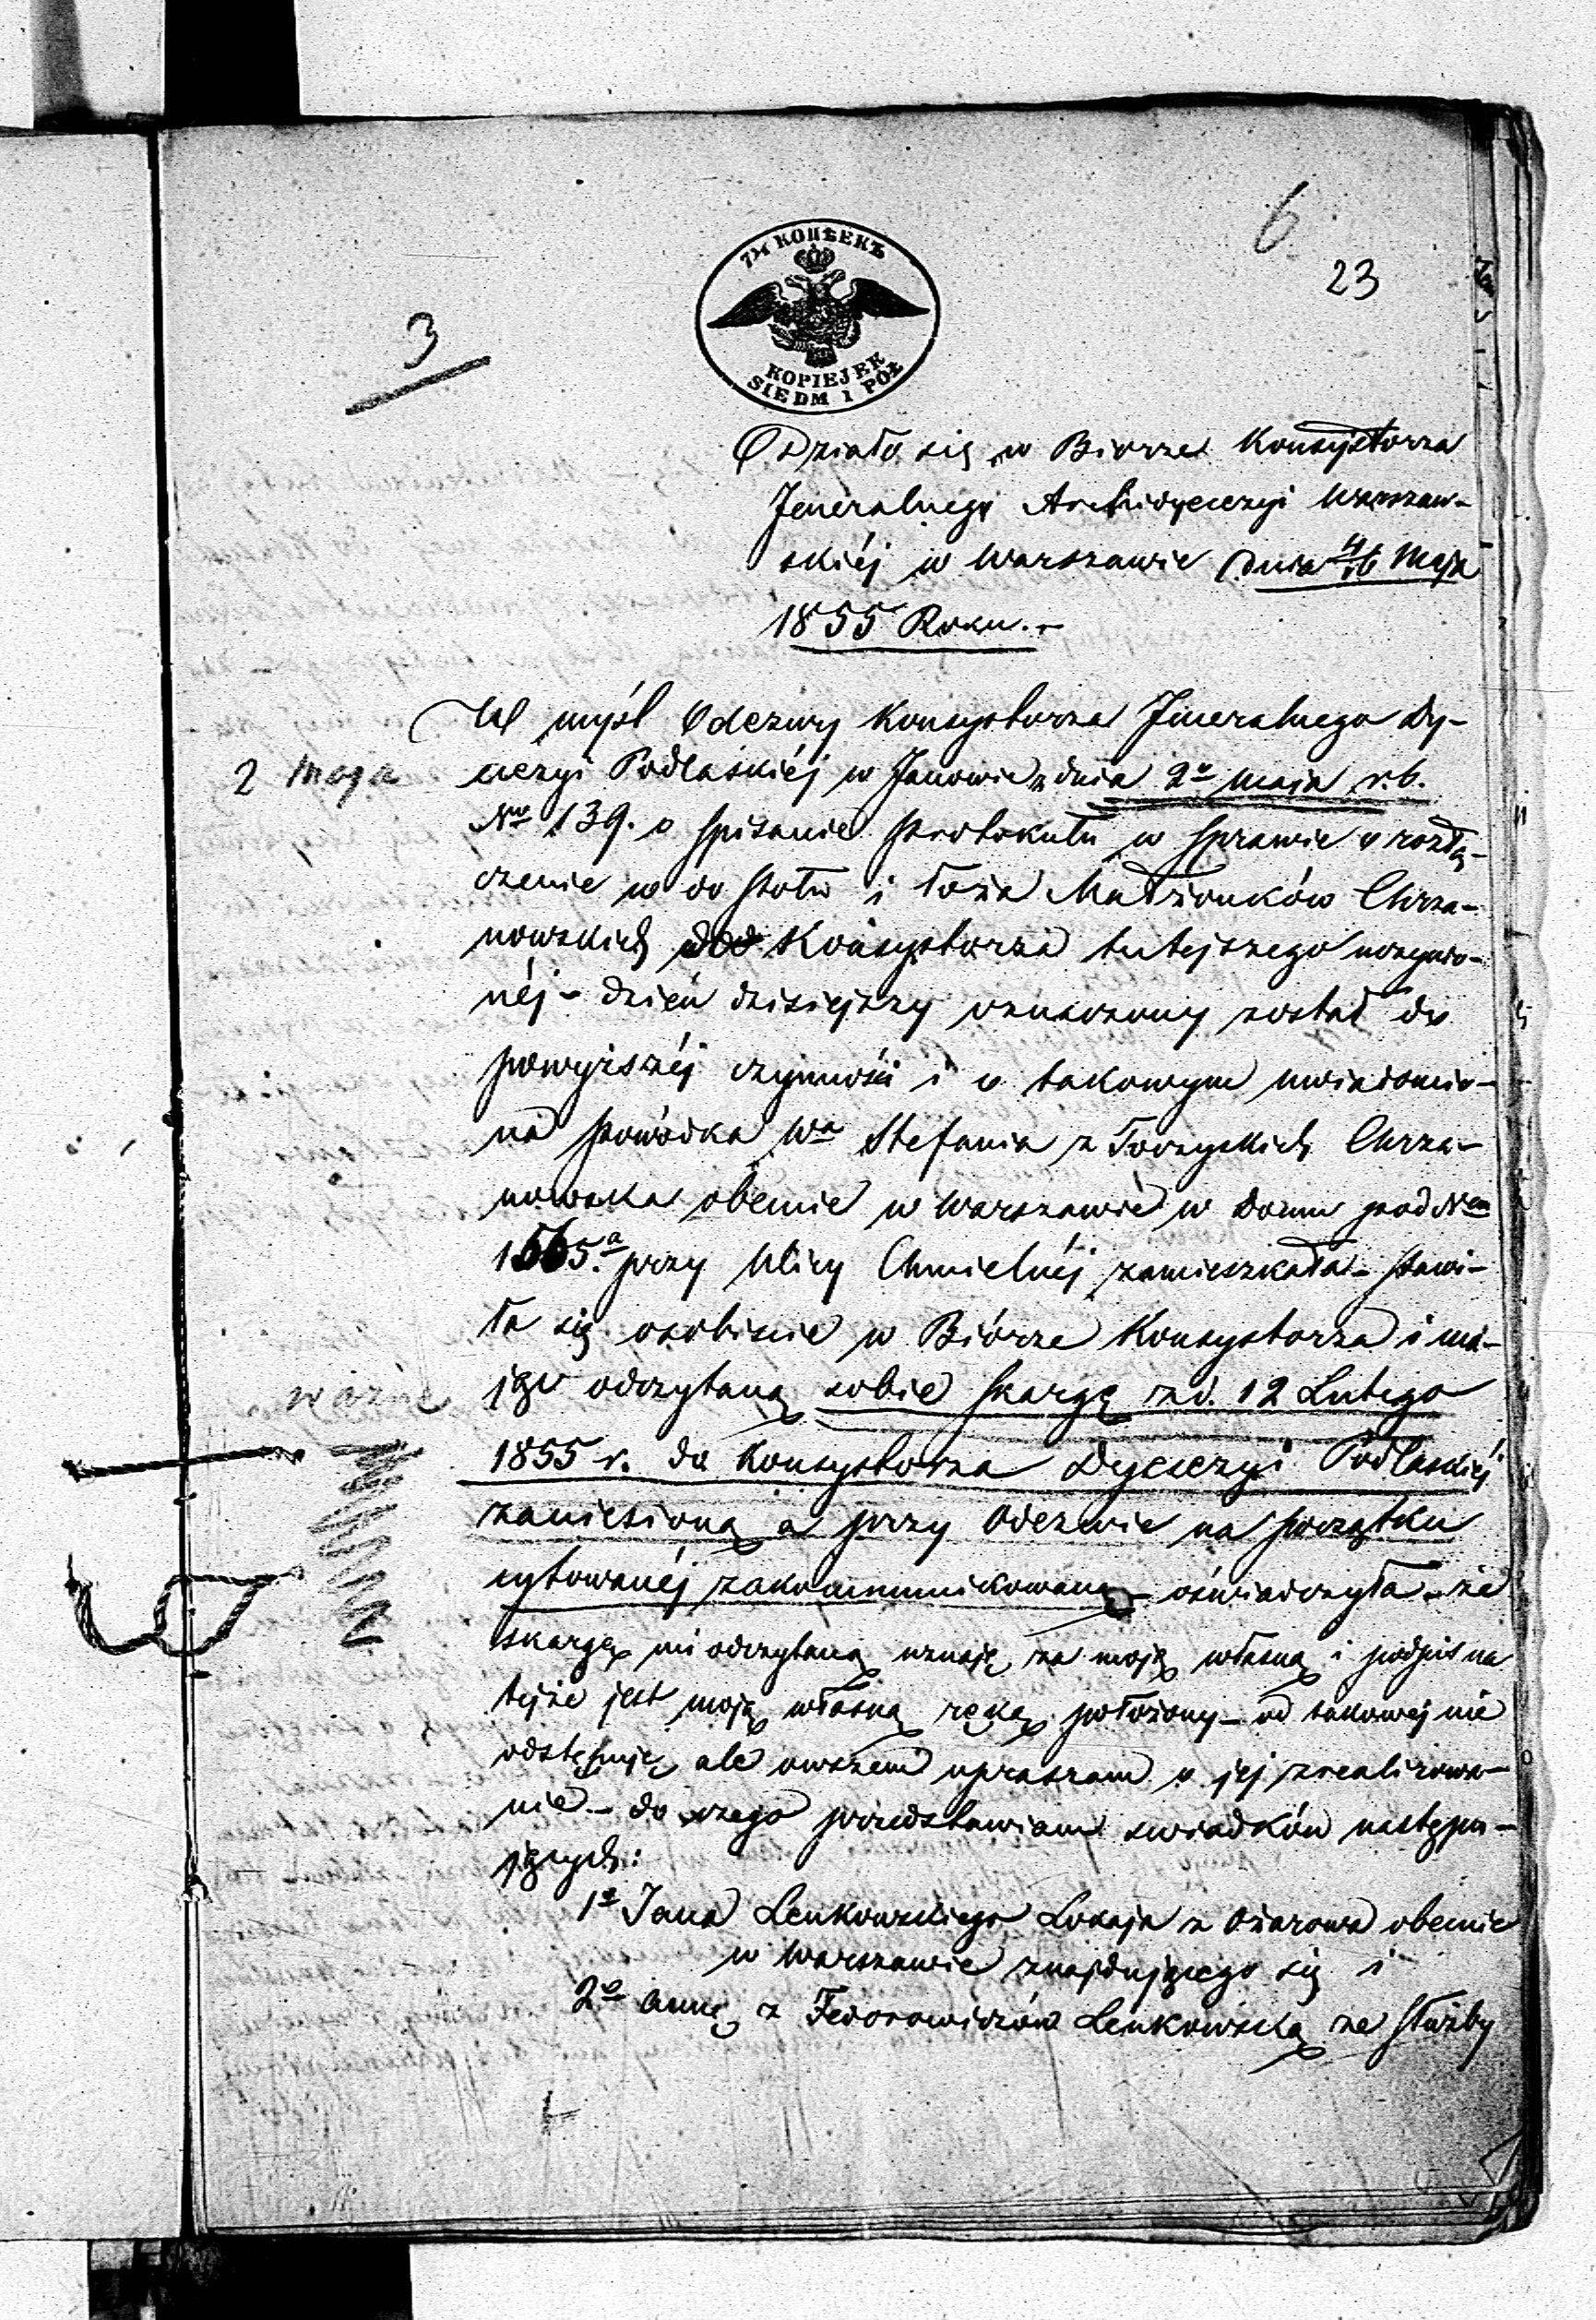 6
23
3
7½ КОПѢЕКЪ
KOPIEJEK
SIEDM I PÓŁ
Działo się w Biórze Konsystorza
Jeneralnego Archidyecezyi Warszaw-
skiéj w Warszawie dnia 4/16 Maja
1855 Roku.-
W myśl Odezwy Konsystorza Jeneralnego Dy-
2 maja
ecezyi Podlaskiéj w Janowie z dnia 2º Maja r.b.
Nro 139. o spisanie Protokułu w sprawie o rozłą-
czenie co do stołu i łoża Małżonków Chrza-
nowskich do Konsystorza tutejszego
néj - dzień dzisiejszy oznaczony został do
powyższéj czynności i o takowym uwiadomio-
na powódka Wa Stefania z Toczyskich Chrza-
nowska obecnie w Warszawie w domu pod Nem
1565.a przy Ulicy Chmielnéj zamieszkała - stawi-
ła się osobiście w Biórze Konsystorza i ma-
ważne
jąc odczytaną sobie skargę z d. 12 Lutego
1855 r. do Konsystorza Dyecezyi Podlaskiéj
zaniesioną a przy Odezwie na początku
cytowanéj zakommunikowaną - oświadczyła - że
skargę mi odczytaną uznaję za moją własną i podpis na
tejże jest moją własną ręką położony - od takowej nie
odstępuję, ale owszem upraszam o jej zrealizowa-
nie - do czego przedstawiam świadków następu-
jących:
1º Jana Lenkowskiego Lokaja z Ożarowa obecnie
w Warszawie znajdującego się i
2º Annę z Fedorowiczów Lenkowską ze służby